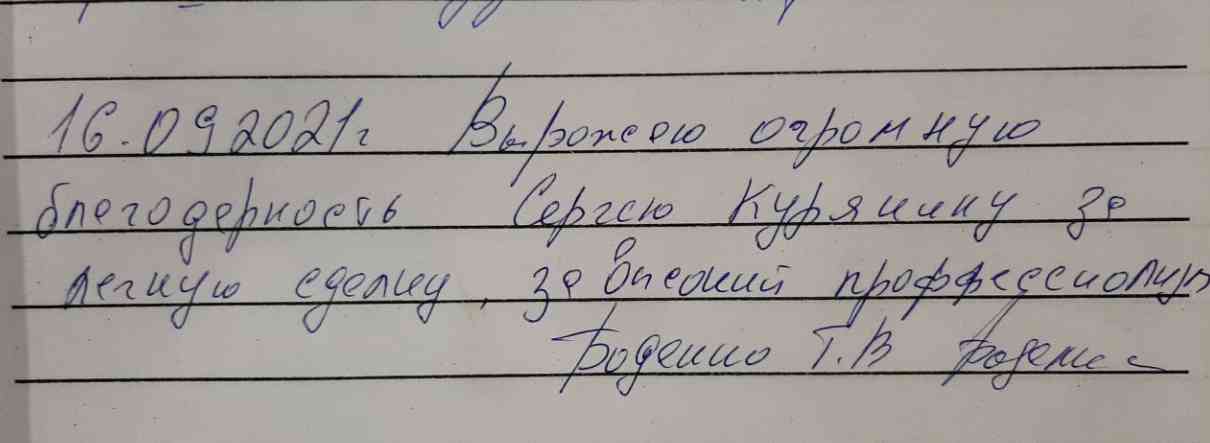 16.09 2021г Выражаю огромную
благодарность Сергею Курянину за
легкую сделку, за высокий профессионализм
Т.В